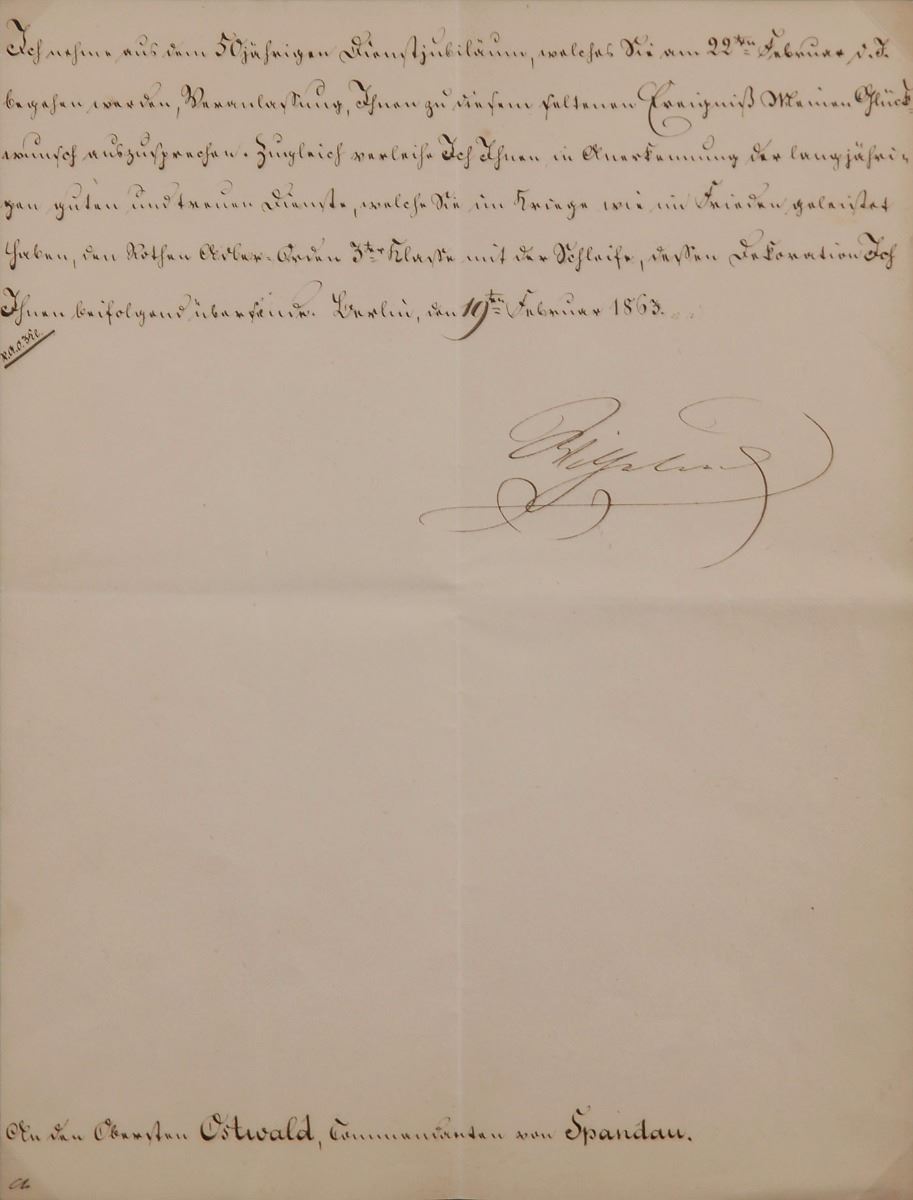 Ich nehme aus dem 50jährigen Dienstjubiläum, welches Sie am 22ten Februar d. J.
begehen werden, Veranlassung, Ihnen zu diesem seltenen Ereigniß Meinen Glück-
wunsch auszusprechen. Zugleich verleihe Ich Ihnen in Anerkennung der langjähri-
gen guten und treuen Dienste, welche Sie im Kriege wie im Frieden geleistet
haben, den Rothen Adler-Orden 3ter Klasse mit der Schleife, dessen Dekoration Ich
Ihnen beifolgend übersende. Berlin, den 19ten Februar 1863.
Wilhelm
An den Obersten Ostwald, Commandanten von Spandau.